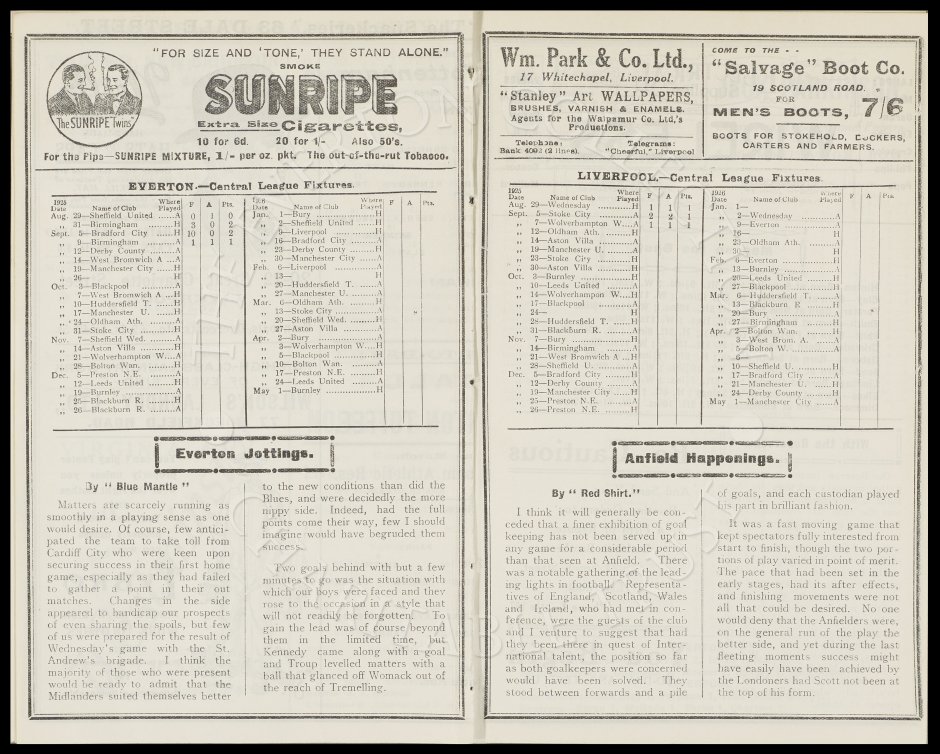 "FOR SIZE AND 'TONE,' THEY STAND ALONE."
SMOKE
SUNRIPE
Extra Size Cigarettes,
10 for 6d. 20 for 1/- Also 50's.
The SUNRIPE Twins
For the Pipe—SUNRIPE MIXTURE, 1/- per oz. pkt. The out-of-the-rut Tobacco.
EVERTON.—Central League Fixtures.
1925
Date Name of Club Where Played F A Pts.
Aug. 29—Sheffield United ......A 0 1 0
,, 31—Birmingham ........H 3 0 2
Sept. 5—Bradford City .....H 10 0 2
,, 9—Birmingham ........A 1 1 1
,, 12—Derby County .......A
,, 14—West Bromwich A ...A
,, 19—Manchester City .....H
,, 26— H
Oct. 3—Blackpool ............A
,, 7—West Bromwich A ...H
,, 10—Huddersfield T. ......H
,, 17—Manchester U. .......H
,, 24—Oldham Ath. ..........A
,, 31—Stoke City ............H
Nov. 7—Sheffield Wed. ........A
,, 14—Aston Villa ..........H
,, 21—Wolverhampton W....A
,, 28—Bolton Wan. ..........H
Dec. 5—Preston N.E. .........A
,, 12—Leeds United .........H
,, 19—Burnley ...............A
,, 25—Blackburn R. .........H
,, 26—Blackburn R. .........A
Date Name of Club Where Played F A Pts.
Jan. 1—Bury ..................H
,, 2—Sheffield United .......H
,, 9—Liverpool ..............H
,, 16—Bradford City .........A
,, 23—Derby County .........H
,, 30—Manchester City ......A
Feb. 6—Liverpool .............A
,, 13— H
,, 20—Huddersfield T. .......A
,, 27—Manchester U. ........A
Mar. 6—Oldham Ath. ..........H
,, 13—Stoke City .............A
,, 20—Sheffield Wed. ........H
,, 27—Aston Villa ...........A
Apr. 2—Bury ..................A
,, 3—Wolverhampton W....H
,, 5—Blackpool .............H
,, 10—Bolton Wan. ..........A
,, 17—Preston N.E. ..........H
,, 24—Leeds United ..........A
May 1—Burnley ...............H
Everton Jottings.
By " Blue Mantle "
Matters are scarcely running as
smoothly in a playing sense as one
would desire. Of course, few antici-
pated the team to take toll from
Cardiff City who were keen upon
securing success in their first home
game, especially as they had failed
to gather a point in their out
matches. Changes in the side
appeared to handicap our prospects
of even sharing the spoils, but few
of us were prepared for the result of
Wednesday's game with the St.
Andrew's brigade. I think the
majority of those who were present
would be ready to admit that the
Midlanders suited themselves better
to the new conditions than did the
Blues, and were decidedly the more
nippy side. Indeed, had the full
points come their way, few I should
imagine would have begruded them
success.
Two goals behind with but a few
minutes to go was the situation with
which our boys were faced and they
rose to the occasion in a style that
will not readily be forgotten. To
gain the lead was of course beyond
them in the limited time, but
Kennedy came along with a goal
and Troup levelled matters with a
ball that glanced off Womack out of
the reach of Tremelling.
Wm. Park & Co. Ltd.,
17 Whitechapel, Liverpool.
"Stanley" Art WALLPAPERS,
BRUSHES, VARNISH & ENAMELS.
Agents for the Walpamur Co. Ltd,'s
Productions.
Telephone: Bank 4092 (2 lines).
Telegrams: "Cheerful," Liverpool
COME TO THE - -
"Salvage" Boot Co.
19 SCOTLAND ROAD.
FOR
MEN'S BOOTS, 7/6
BOOTS FOR STOKEHOLD, DOCKERS,
CARTERS AND FARMERS.
LIVERPOOL.—Central League Fixtures.
1925
Date Name of Club Where Played F A Pts.
Aug. 29—Wednesday ............H 1 1 1
Sept. 5—Stoke City ............A 2 2 1
,, 7—Wolverhampton W....A 1 1 1
,, 12—Oldham Ath. ..........H
,, 14—Aston Villa ...........A
,, 19—Manchester U. ........A
,, 23—Stoke City ............H
,, 30—Aston Villa ...........H
Oct. 3—Burnley ...............H
,, 10—Leeds United ..........A
,, 14—Wolverhampton W....H
,, 17—Blackpool .............A
,, 24— H
,, 28—Huddersfield T. .......H
,, 31—Blackburn R. ..........A
Nov. 7—Bury ..................H
,, 14—Birmingham ...........A
,, 21—West Bromwich A ...H
,, 28—Sheffield U. ...........A
Dec. 5—Bradford City .........H
,, 12—Derby County .........A
,, 19—Manchester City ......H
,, 25—Preston N.E. ..........A
,, 26—Preston N.E. ..........H
1926
Date Name of Club Where Played F A Pts.
Jan. 1—
,, 2—Wednesday ............A
,, 9—Everton ...............A
,, 16— H
,, 23—Oldham Ath. ..........A
,, 30— H
Feb. 6—Everton ...............H
,, 13—Burnley ...............A
,, 20—Leeds United ..........H
,, 27—Blackpool .............H
Mar. 6—Huddersfield T. .......A
,, 13—Blackburn R. ..........H
,, 20—Bury ..................A
,, 27—Birmingham ...........H
Apr. 2—Bolton Wan. ..........H
,, 3—West Brom. A. ........A
,, 5—Bolton W. .............A
,, 6—
,, 10—Sheffield U. ...........H
,, 17—Bradford City .........A
,, 21—Manchester U. ........H
,, 24—Derby County .........H
May 1—Manchester City ......A
Anfield Happenings.
By " Red Shirt."
I think it will generally be con-
ceded that a finer exhibition of goal
keeping has not been served up in
any game for a considerable period
than that seen at Anfield. There
was a notable gathering of the lead-
ing lights in football. Representa-
tives of England, Scotland, Wales
and Ireland, who had met in con-
ference, were the guests of the club
and I venture to suggest that had
they been there in quest of Inter-
national talent, the position so far
as both goalkeepers were concerned
would have been solved. They
stood between forwards and a pile
of goals, and each custodian played
his part in brilliant fashion.
It was a fast moving game that
kept spectators fully interested from
start to finish, though the two por-
tions of play varied in point of merit.
The pace that had been set in the
early stages, had its after effects,
and finishing movements were not
all that could be desired. No one
would deny that the Anfielders were,
on the general run of the play the
better side, and yet during the last
fleeting moments success might
have easily have been achieved by
the Londoners had Scott not been at
the top of his form.